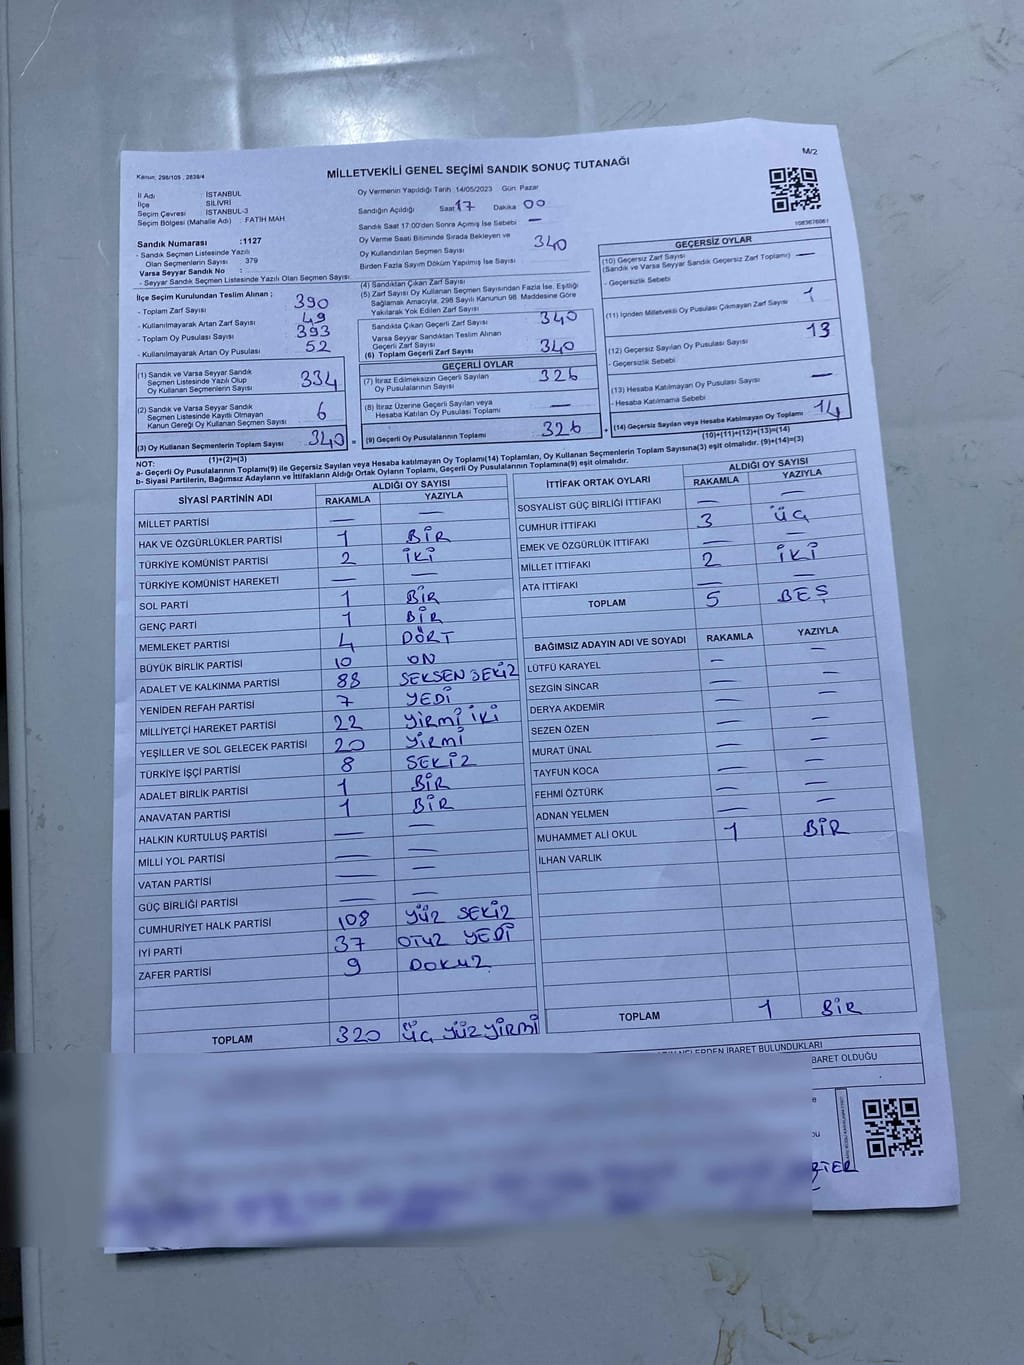 M/2
Kanun, 298/105 , 2839/4
MİLLETVEKİLİ GENEL SEÇİMİ SANDIK SONUÇ TUTANAĞI
İl Adı : İSTANBUL
İlçe : SİLİVRİ
Seçim Çevresi : İSTANBUL-3
Seçim Bölgesi (Mahalle Adı) : FATİH MAH
Sandık Numarası :1127
- Sandık Seçmen Listesinde Yazılı
Olan Seçmenlerin Sayısı : 379
Varsa Seyyar Sandık No :
- Seyyar Sandık Seçmen Listesinde Yazılı Olan Seçmen Sayısı:
Oy Vermenin Yapıldığı Tarih :14/05/2023 Gün Pazar
Sandığın Açıldığı Saat 17 Dakika 00
Sandık Saat 17:00'den Sonra Açılmış İse Sebebi —
Oy Verme Saati Bitiminde Sırada Bekleyen ve
Oy Kullandırılan Seçmen Sayısı 340
Birden Fazla Sayım Döküm Yapılmış İse Sayısı
1083676061
İlçe Seçim Kurulundan Teslim Alınan ;
- Toplam Zarf Sayısı 390
- Kullanılmayarak Artan Zarf Sayısı 49
- Toplam Oy Pusulası Sayısı 393
- Kullanılmayarak Artan Oy Pusulası 52
(1) Sandık ve Varsa Seyyar Sandık
Seçmen Listesinde Yazılı Olup
Oy Kullanan Seçmenlerin Sayısı 334
(2) Sandık ve Varsa Seyyar Sandık
Seçmen Listesinde Kayıtlı Olmayan
Kanun Gereği Oy Kullanan Seçmen Sayısı 6
(3) Oy Kullanan Seçmenlerin Toplam Sayısı 340 =
(1)+(2)=(3)
(4) Sandıktan Çıkan Zarf Sayısı
(5) Zarf Sayısı Oy Kullanan Seçmen Sayısından Fazla İse, Eşitliği
Sağlamak Amacıyla, 298 Sayılı Kanunun 98. Maddesine Göre
Yakılarak Yok Edilen Zarf Sayısı
Sandıkta Çıkan Geçerli Zarf Sayısı 340
Varsa Seyyar Sandıktan Teslim Alınan
Geçerli Zarf Sayısı
(6) Toplam Geçerli Zarf Sayısı 340
GEÇERLİ OYLAR
(7) İtiraz Edilmeksizin Geçerli Sayılan
Oy Pusulalarının Sayısı 326
(8) İtiraz Üzerine Geçerli Sayılan veya
Hesaba Katılan Oy Pusulası Toplamı —
(9) Geçerli Oy Pusulalarının Toplamı 326 +
GEÇERSİZ OYLAR
(10) Geçersiz Zarf Sayısı
(Sandık ve Varsa Seyyar Sandık Geçersiz Zarf Toplamı) —
- Geçersizlik Sebebi
(11) İçinden Milletvekili Oy Pusulası Çıkmayan Zarf Sayısı 1
(12) Geçersiz Sayılan Oy Pusulası Sayısı 13
- Geçersizlik Sebebi
(13) Hesaba Katılmayan Oy Pusulası Sayısı —
- Hesaba Katılmama Sebebi
(14) Geçersiz Sayılan veya Hesaba Katılmayan Oy Toplamı 14
(10)+(11)+(12)+(13)=(14)
NOT:
a- Geçerli Oy Pusulalarının Toplamı(9) ile Geçersiz Sayılan veya Hesaba katılmayan Oy Toplamı(14) Toplamları, Oy Kullanan Seçmenlerin Toplam Sayısına(3) eşit olmalıdır. (9)+(14)=(3)
b- Siyasi Partilerin, Bağımsız Adayların ve İttifakların Aldığı Ortak Oyların Toplamı, Geçerli Oy Pusulalarının Toplamına(9) eşit olmalıdır.
SİYASİ PARTİNİN ADI ALDIĞI OY SAYISI
RAKAMLA YAZIYLA
MİLLET PARTİSİ — —
HAK VE ÖZGÜRLÜKLER PARTİSİ 1 BİR
TÜRKİYE KOMÜNİST PARTİSİ 2 İKİ
TÜRKİYE KOMÜNİST HAREKETİ — —
SOL PARTİ 1 BİR
GENÇ PARTİ 1 BİR
MEMLEKET PARTİSİ 4 DÖRT
BÜYÜK BİRLİK PARTİSİ 10 ON
ADALET VE KALKINMA PARTİSİ 88 SEKSEN SEKİZ
YENİDEN REFAH PARTİSİ 7 YEDİ
MİLLİYETÇİ HAREKET PARTİSİ 22 YİRMİ İKİ
YEŞİLLER VE SOL GELECEK PARTİSİ 20 YİRMİ
TÜRKİYE İŞÇİ PARTİSİ 8 SEKİZ
ADALET BİRLİK PARTİSİ 1 BİR
ANAVATAN PARTİSİ 1 BİR
HALKIN KURTULUŞ PARTİSİ — —
MİLLİ YOL PARTİSİ — —
VATAN PARTİSİ — —
GÜÇ BİRLİĞİ PARTİSİ — —
CUMHURİYET HALK PARTİSİ 108 YÜZ SEKİZ
İYİ PARTİ 37 OTUZ YEDİ
ZAFER PARTİSİ 9 DOKUZ
TOPLAM 320 ÜÇ YÜZ YİRMİ
İTTİFAK ORTAK OYLARI ALDIĞI OY SAYISI
RAKAMLA YAZIYLA
SOSYALİST GÜÇ BİRLİĞİ İTTİFAKI — —
CUMHUR İTTİFAKI 3 ÜÇ
EMEK VE ÖZGÜRLÜK İTTİFAKI — —
MİLLET İTTİFAKI 2 İKİ
ATA İTTİFAKI — —
TOPLAM 5 BEŞ
BAĞIMSIZ ADAYIN ADI VE SOYADI RAKAMLA YAZIYLA
LÜTFÜ KARAYEL — —
SEZGİN SİNCAR — —
DERYA AKDEMİR — —
SEZEN ÖZEN — —
MURAT ÜNAL — —
TAYFUN KOCA — —
FEHMİ ÖZTÜRK — —
ADNAN YELMEN — —
MUHAMMET ALİ OKUL 1 BİR
İLHAN VARLIK
TOPLAM 1 BİR
NELERDEN İBARET BULUNDUKLARI
BARET OLDUĞU